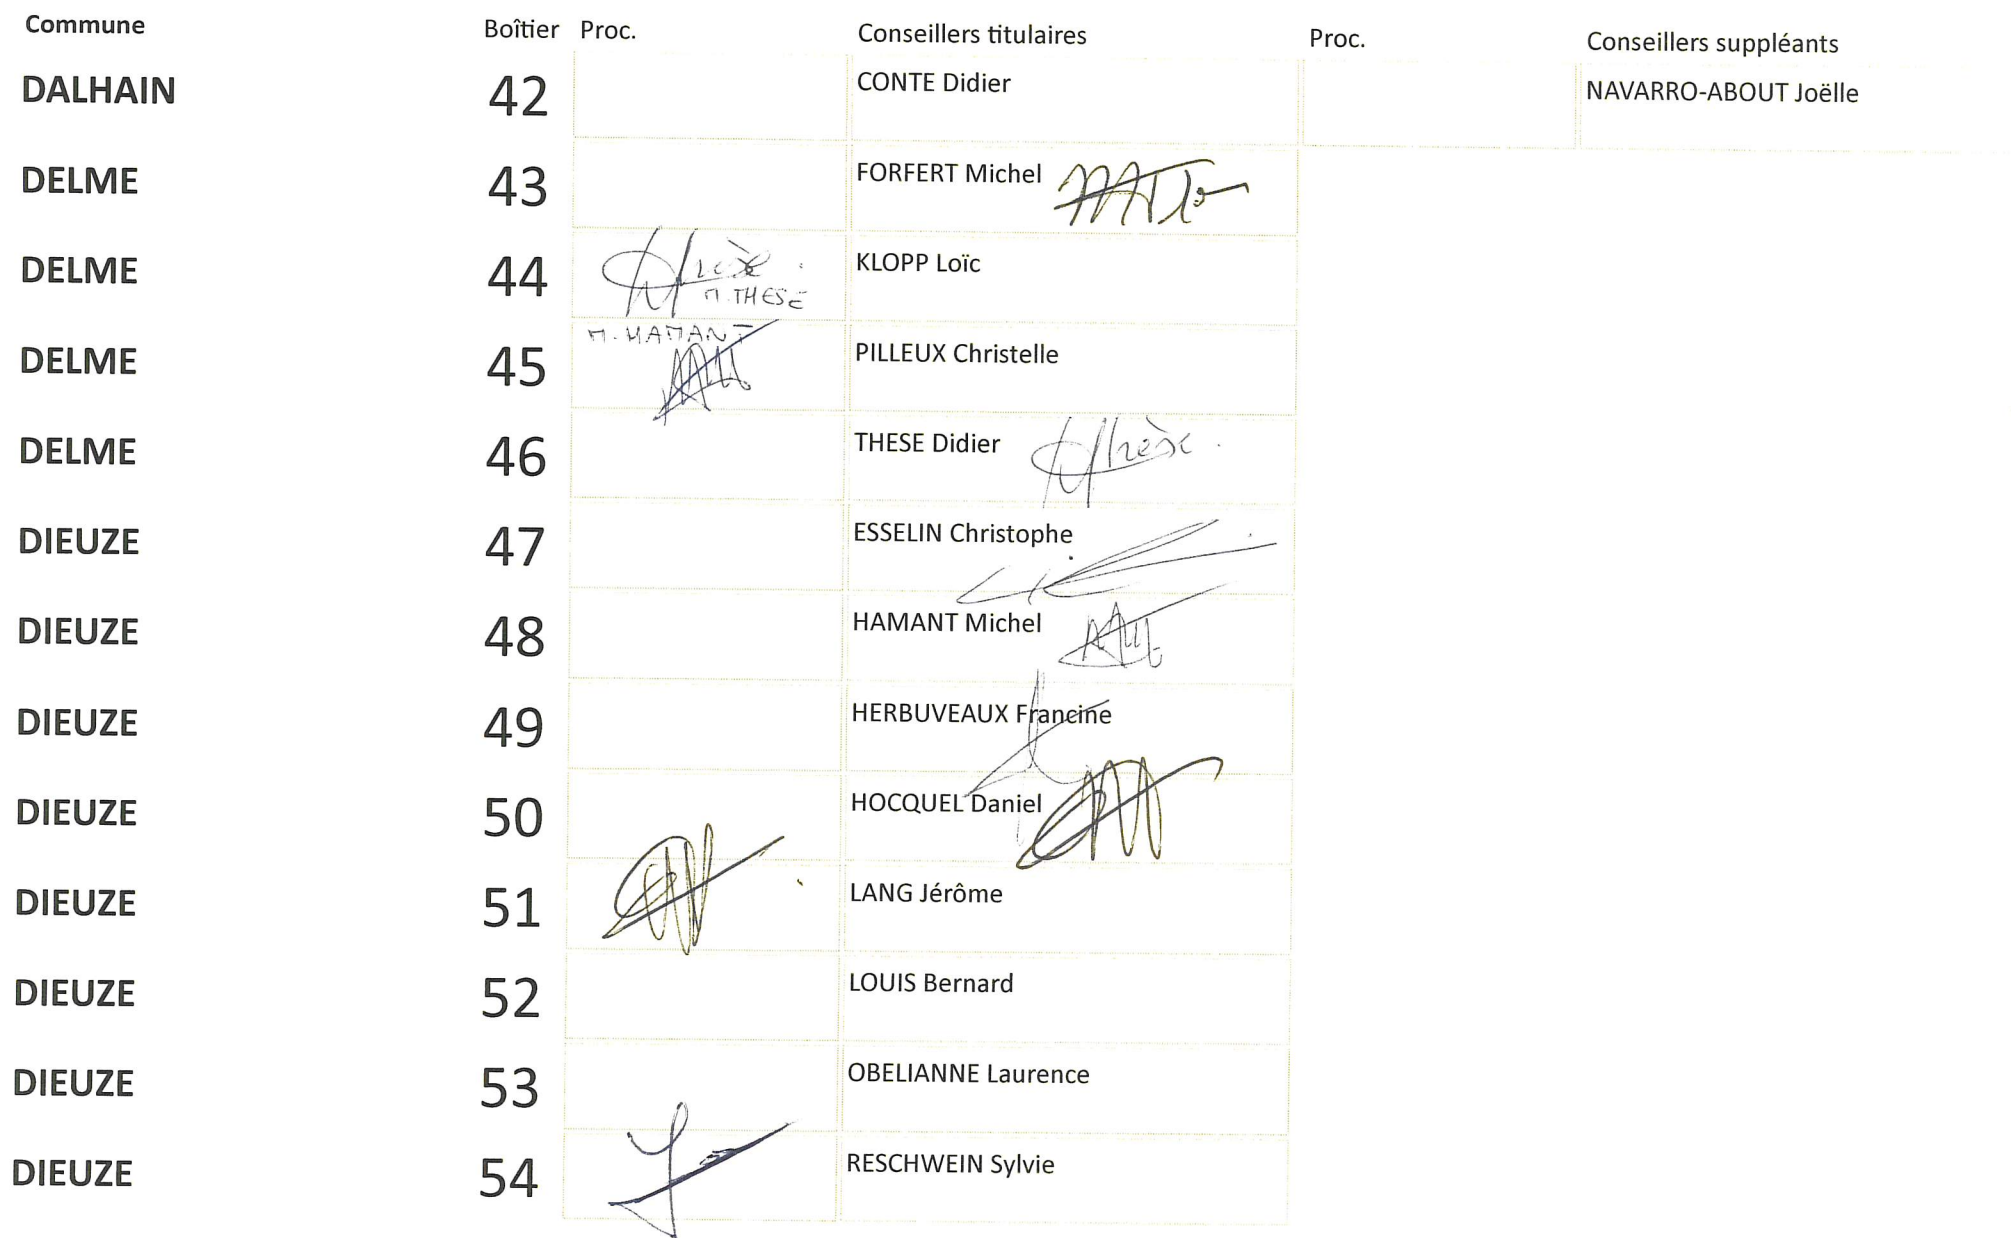 Commune Boîtier Proc. Conseillers titulaires Proc. Conseillers suppléants
DALHAIN 42 CONTE Didier NAVARRO-ABOUT Joëlle
DELME 43 FORFERT Michel
DELME 44 KLOPP Loïc
M. THESE
M. HAMANT
DELME 45 PILLEUX Christelle
DELME 46 THESE Didier
DIEUZE 47 ESSELIN Christophe
DIEUZE 48 HAMANT Michel
DIEUZE 49 HERBUVEAUX Francine
DIEUZE 50 HOCQUEL Daniel
DIEUZE 51 LANG Jérôme
DIEUZE 52 LOUIS Bernard
DIEUZE 53 OBELIANNE Laurence
DIEUZE 54 RESCHWEIN Sylvie